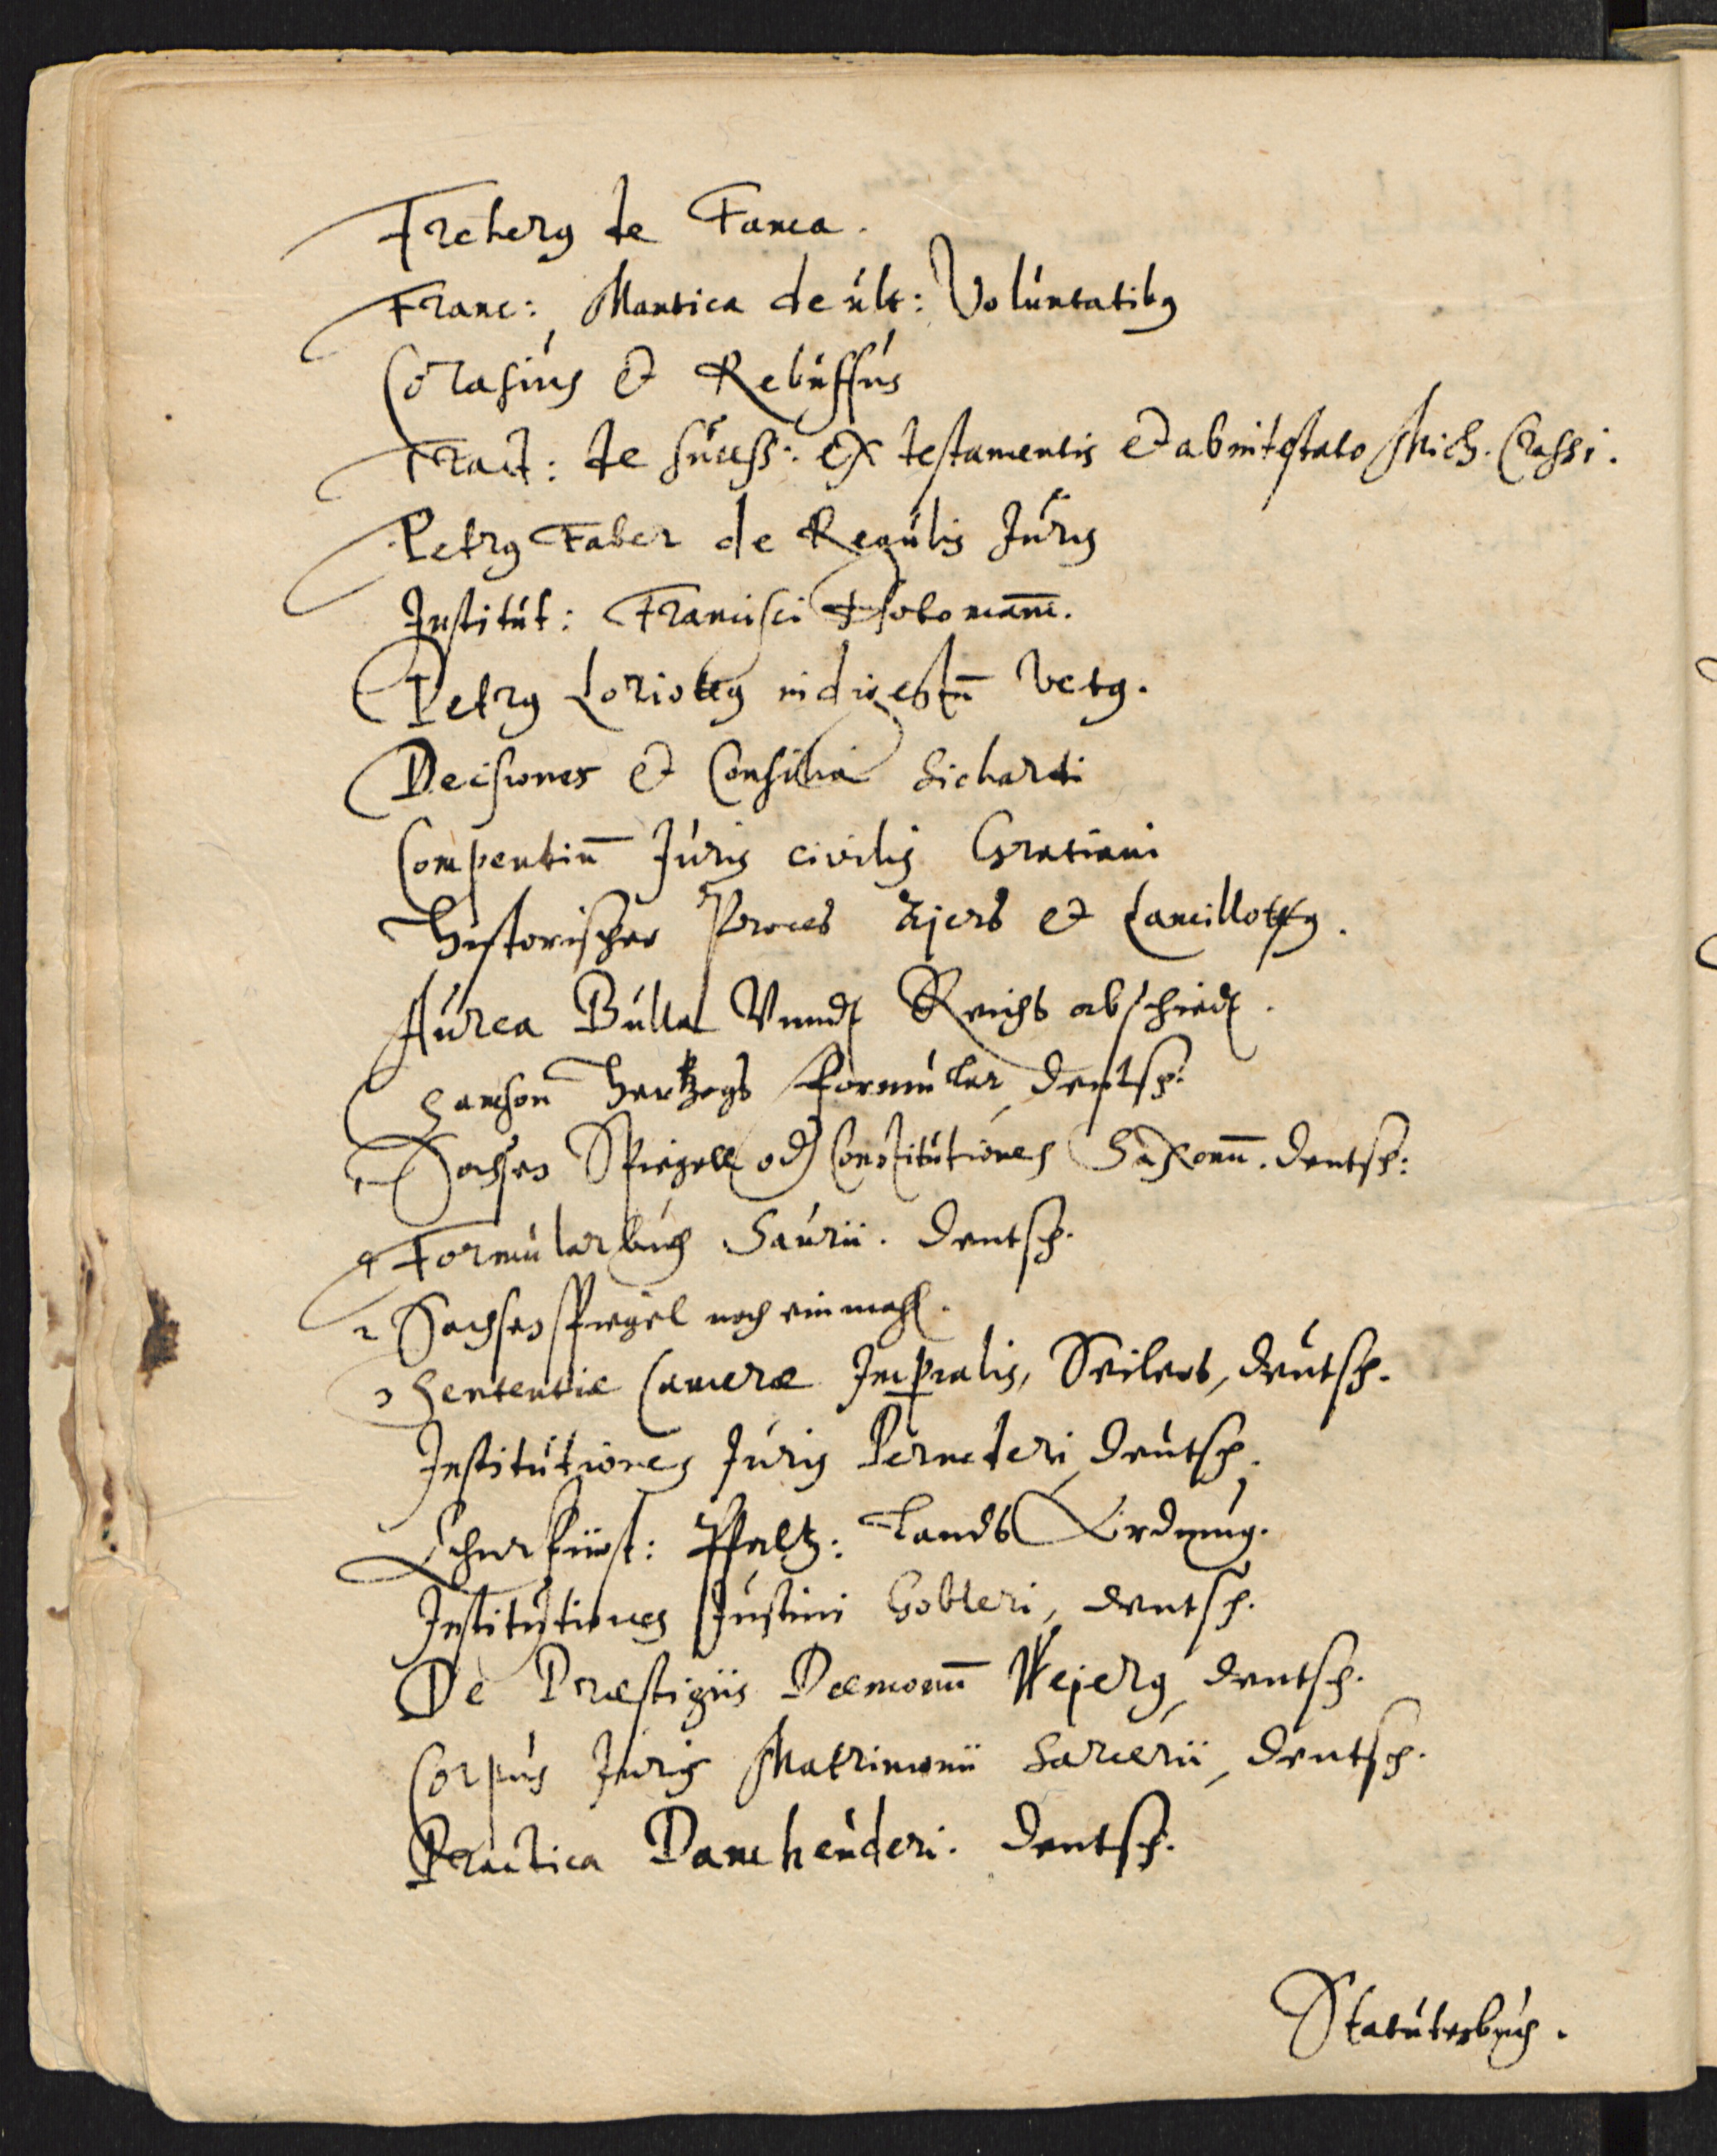 Freherg de Fama.
Franc: Mantica de últ: Volúntatibg
Corasiús et Rebúffús
Tract: de súcess: ex testamentis et ab intestato Mich. Crassi.
Petrg Faber de Regúlis Júris
Institút: Francisci Hotomanni.
Petrg Loriottg in digestū vetg.
Decisiones et Consilia Sichardi
Compendiū Júris civilis Gratiani
Historischer Proces Ayers et Lancillottg.
Aúrea Búlla Vnnd Reichs abschied.
Samson Hertzogs Formúlar, deutsch.
1 Sachsen Spiegell od Constitútiones Saxonū. deutsch:
4 Formúlarbúch Saúrii. deutsch.
2 Sachsenspiegel noch ein mahl.
3 Sententiæ Cameræ Imperialis, Seilers, deútsch.
Institútiones Júris Pernederi, deútsch.
Chúrfürst: Pfaltz: Lands Ordnúng.
Institútiones Jústini Gobleri, deutsch.
De Præstigiis Dæmonū Weyerg, deutsch.
Corpús Júris Matrimonii Sarcerii, deutsch.
Practica Damheúderi. deutsch.
Statútenbúch.